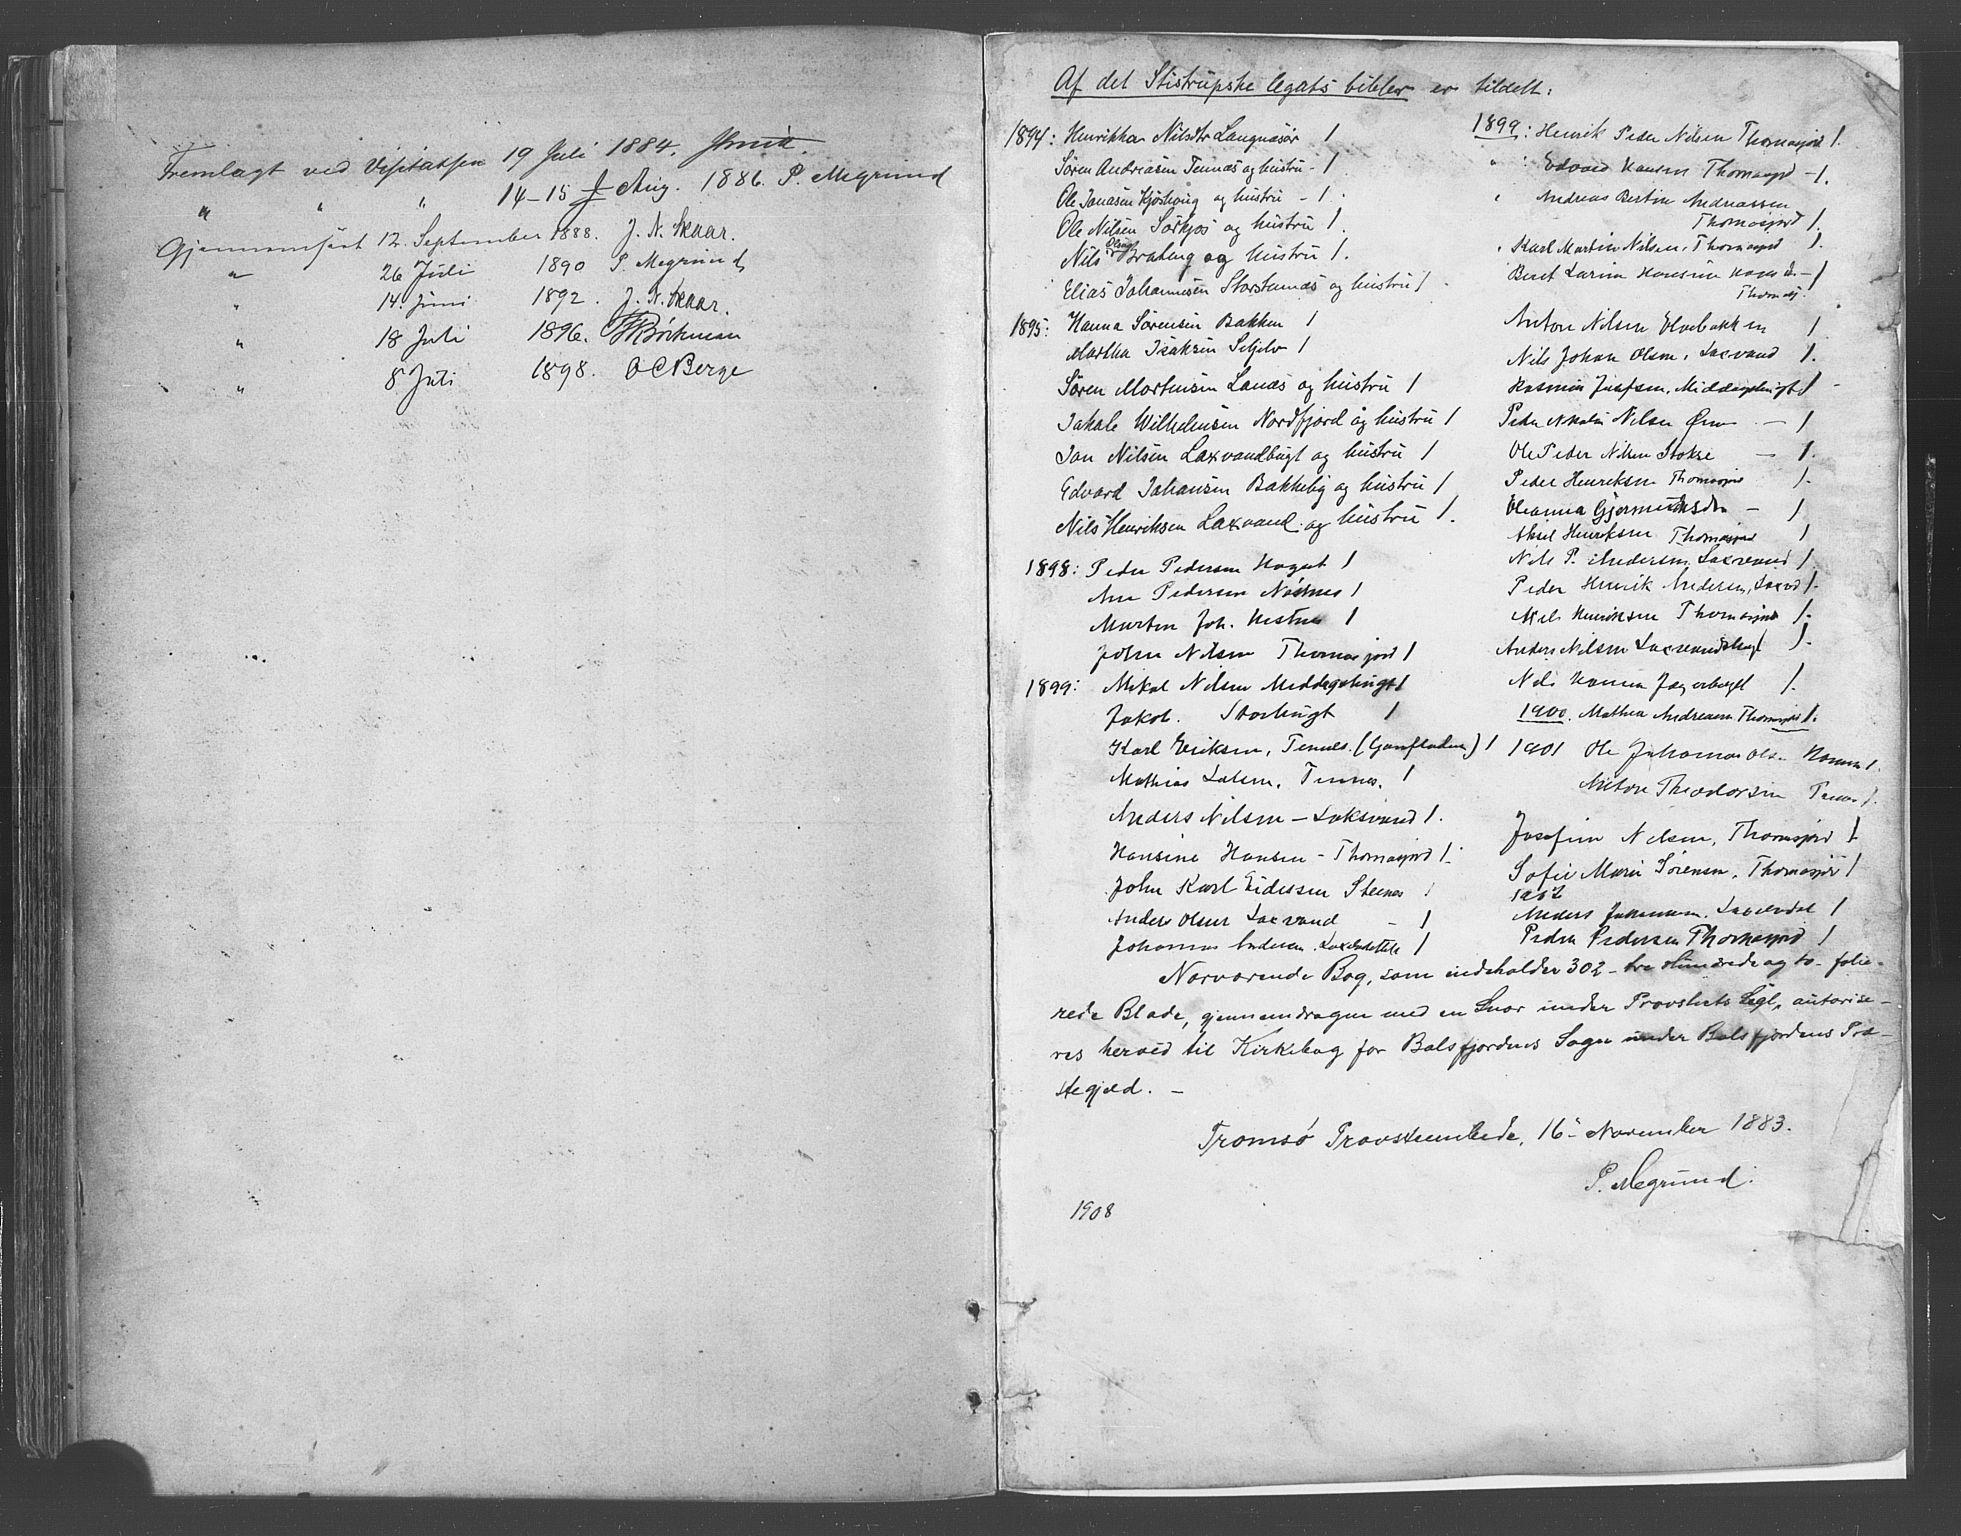 Fremlagt ved Visitatsen 19 Juli 1884.
" " " 14-15 Aug. 1886. P. Megrund
Gjennemseet 12. September 1888. J. N. Skaar.
" 26 Juli 1890 P. Megrund
" 14. Juni 1892. J. N. Skaar.
" 18 Juli 1896. Böckman
" 8 Juli 1898. O C Berge
Af det Stistrupske legats bibler er tildelt:
1894: Henrikka Nilsdtr Langnæsør 1
Søren Andreasen Tennæs og hustru - 1
Ole Jonasen og hustru - 1.
Ole Nilsen Sørkjos og hustru 1.
Nils Olsen Brateng og hustru 1.
Elias Johannesen Storstennæs og hustru 1
1895: Hanna Sørensen Bakken 1
Martha Isaksen 1
Søren Mortensen Lanæs og hustru 1
Wilhelmsen Nordfjord og hustru 1
Jon Nilsen Laxvandbugt og hustru 1
Edvard Johansen Bakkeby og hustru 1
Nils Henriksen Laxvand og hustru 1.
1898: Peder Pedersen 1
Ane Pedersen 1
Morten Joh. 1
John Nilsen Thomasjord 1
1899: Mikal Nilsen Middagsbugt 1
Jakob. Storbugt 1
Karl Eriksen, Tennes. 1
Mathias Tennes. 1
Anders Nilsen - Laksvand 1.
Hansine Hansen - Thomasjord 1.
John Karl Stennes 1
Anders Olsen Laxvand - 1
Johannes Andersen. 1
1899: Henrik Peder Nilsen Thomasjord 1.
" : Edvard Hansen Thomasjord - 1.
" Andreas Bertin Andreassen
Thomasjord 1.
" Karl Martin Nilsen. Thomasjord 1.
Beret Larine Hansine - 1
Thomasj.
Anton Nilsen Elvebakken 1
Nils Johan Olsen. Laxvand 1.
Rasmus Middagsbugt 1 -
Peder Nikolai Nilsen - 1
Ole Peder Nilsen - 1.
Peder Henriksen Thomasjord 1.
Oleanna - 1
Aksel Henriksen Thomasjord 1
Nils P. Andersen, Laxvand 1.
Peder Henrik Andersen, Laxvd 1.
Henriksen Thomasjord 1.
Anders Nilsen Laxvandsbugt 1.
Nils Hansen 1.
1900. Mathea Andreasen Thomasjord 1.
1901 Ole Johannes Olsen 1.
Anton Theodorsen 1.
Josefine Nilsen, Thomasjord 1.
Sofie Marie Sørensen. Thomasjord 1
1902
Anders Johannesen. 1
Peder Pedersen Thomasjord 1
Nærværende Bog, som indeholder 302 - tre Hundrede og to - folie-
rede Blade, gjennemdragen med en Snor under Provstiets Segl, autorise-
res herved til Kirkebog for Balsfjordens Sogn under Balsfjordens Præ-
stegjæld. -
Tromsø Provstembede, 16. November 1883.
P. Megrund.
1908